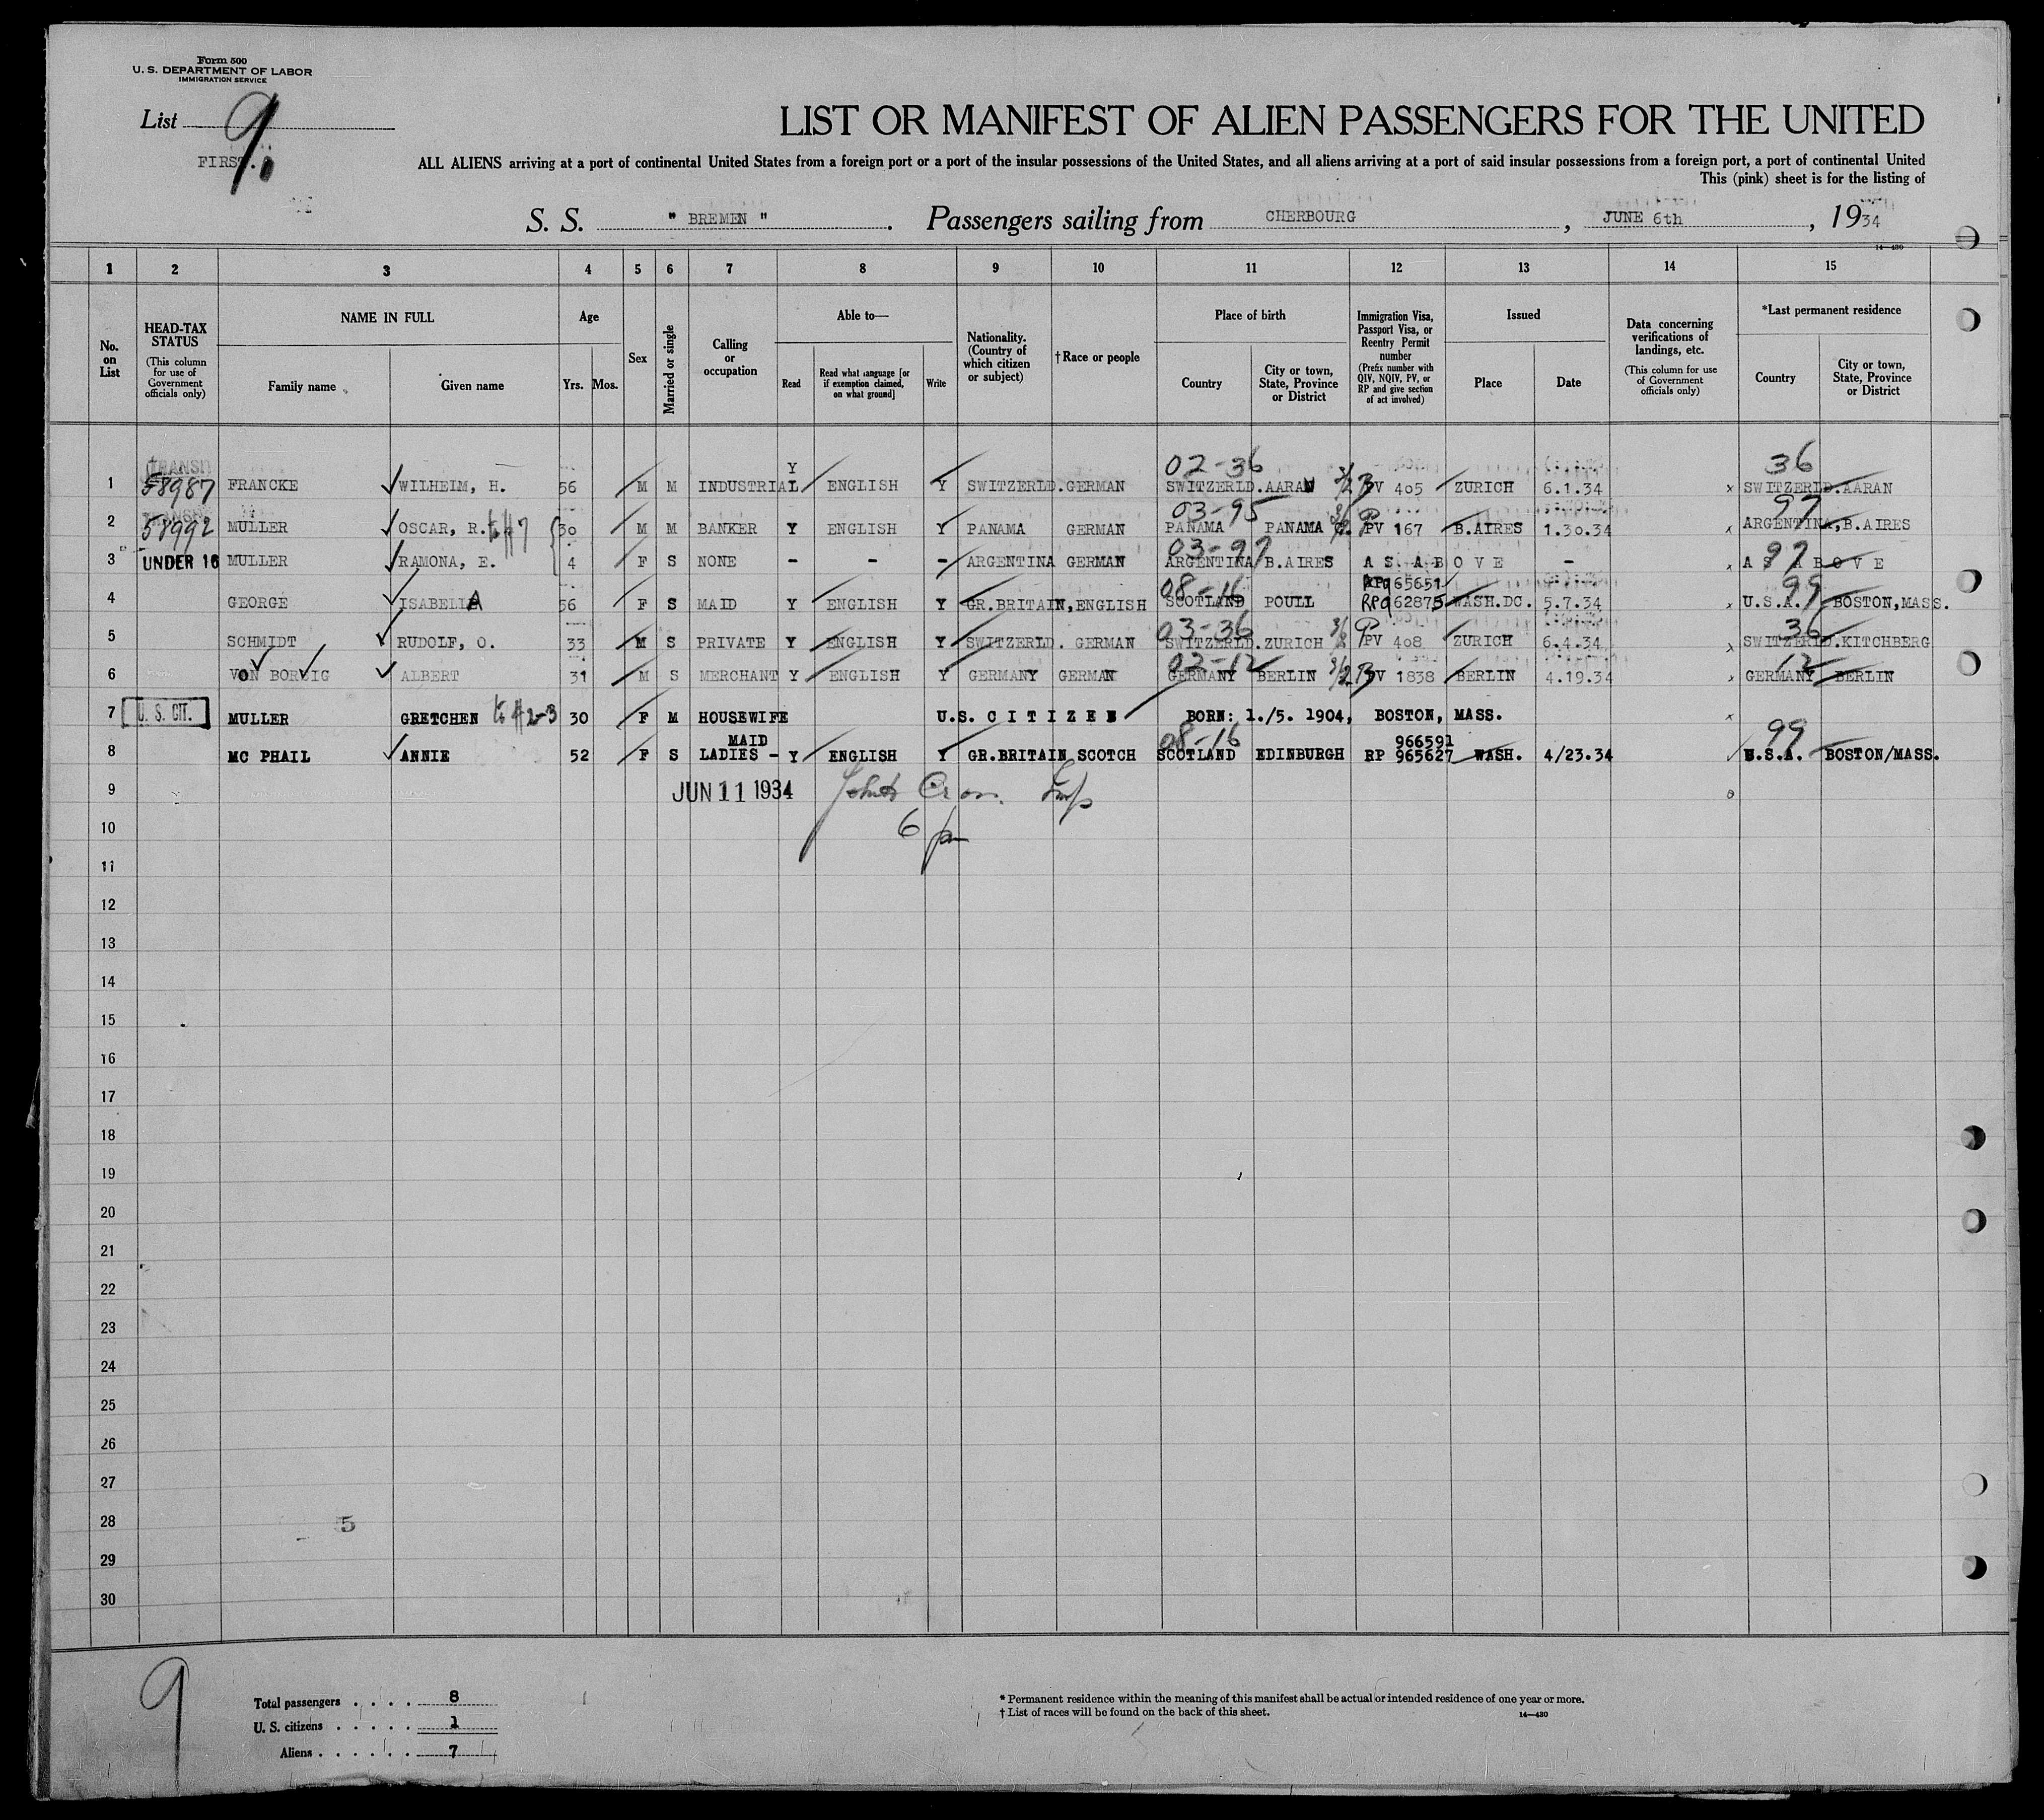 Form 500
U. S. DEPARTMENT OF LABOR
IMMIGRATION SERVICE
List 9
FIRST.
LIST OR MANIFEST OF ALIEN PASSENGERS FOR THE UNITED
ALL ALIENS arriving at a port of continental United States from a foreign port or a port of the insular possessions of the United States, and all aliens arriving at a port of said insular possessions from a foreign port, a port of continental United
This (pink) sheet is for the listing of
S. S. " BREMEN " . Passengers sailing from CHERBOURG , JUNE 6th , 1934
14-430
1 2 3 4 5 6 7 8 9 10 11 12 13 14 15
No. on List
HEAD-TAX STATUS (This column for use of Government officials only)
NAME IN FULL
Family name Given name
Age
Yrs. Mos.
Sex
Married or single
Calling or occupation
Able to—
Read
Read what language [or if exemption claimed, on what ground]
Write
Nationality. (Country of which citizen or subject)
†Race or people
Place of birth
Country
City or town, State, Province or District
Immigration Visa, Passport Visa, or Reentry Permit number (Prefix number with QIV, NQIV, PV, or RP and give section of act involved)
Issued
Place Date
Data concerning verifications of landings, etc. (This column for use of Government officials only)
*Last permanent residence
Country
City or town, State, Province or District
TRANSIT Y 02-36 36
1 58987 FRANCKE WILHEIM, H. 56 M M INDUSTRIAL ENGLISH Y SWITZERLD. GERMAN SWITZERLD. AARAU 3/2 PV 405 ZURICH 6.1.34 x SWITZERLD. AARAN
03-95 97
2 58992 MULLER OSCAR, R. to #7 30 M M BANKER Y ENGLISH Y PANAMA GERMAN PANAMA PANAMA C. PV 167 B.AIRES 1.30.34 x ARGENTINA, B.AIRES
03-97 97
3 UNDER 16 MULLER RAMONA, E. 4 F S NONE - - - ARGENTINA GERMAN ARGENTINA B.AIRES A S A B O V E - x A S A B O V E
08-16 RP965651 99
4 GEORGE ISABELLA 56 F S MAID Y ENGLISH Y GR.BRITAIN, ENGLISH SCOTLAND POULL RP962875 WASH.DC. 5.7.34 x U.S.A. BOSTON, MASS.
03-36 36
5 SCHMIDT RUDOLF, O. 33 M S PRIVATE Y ENGLISH Y SWITZERLD. GERMAN SWITZERLD. ZURICH 3/2 PV 408 ZURICH 6.4.34 x SWITZERLD. KITCHBERG
02-12 12
6 VON BORWIG ALBERT 31 M S MERCHANT Y ENGLISH Y GERMANY GERMAN GERMANY BERLIN 3/2 PV 1838 BERLIN 4.19.34 x GERMANY BERLIN
7 U. S. CIT. MULLER GRETCHEN to #2-3 30 F M HOUSEWIFE U.S. C I T I Z E N BORN: 1./5. 1904, BOSTON, MASS. x
MAID 08-16 966591 99
8 MC PHAIL ANNIE 52 F S LADIES - Y ENGLISH Y GR.BRITAIN SCOTCH SCOTLAND EDINBURGH RP 965627 WASH. 4/23.34 U.S.A. BOSTON/MASS.
9 JUN 11 1934
10 6 pm
11
12
13
14
15
16
17
18
19
20
21
22
23
24
25
26
27
28 5
29
30
9
Total passengers . . . . 8
U. S. citizens . . . . . 1
Aliens . . . . . . 7
* Permanent residence within the meaning of this manifest shall be actual or intended residence of one year or more.
† List of races will be found on the back of this sheet. 14-430